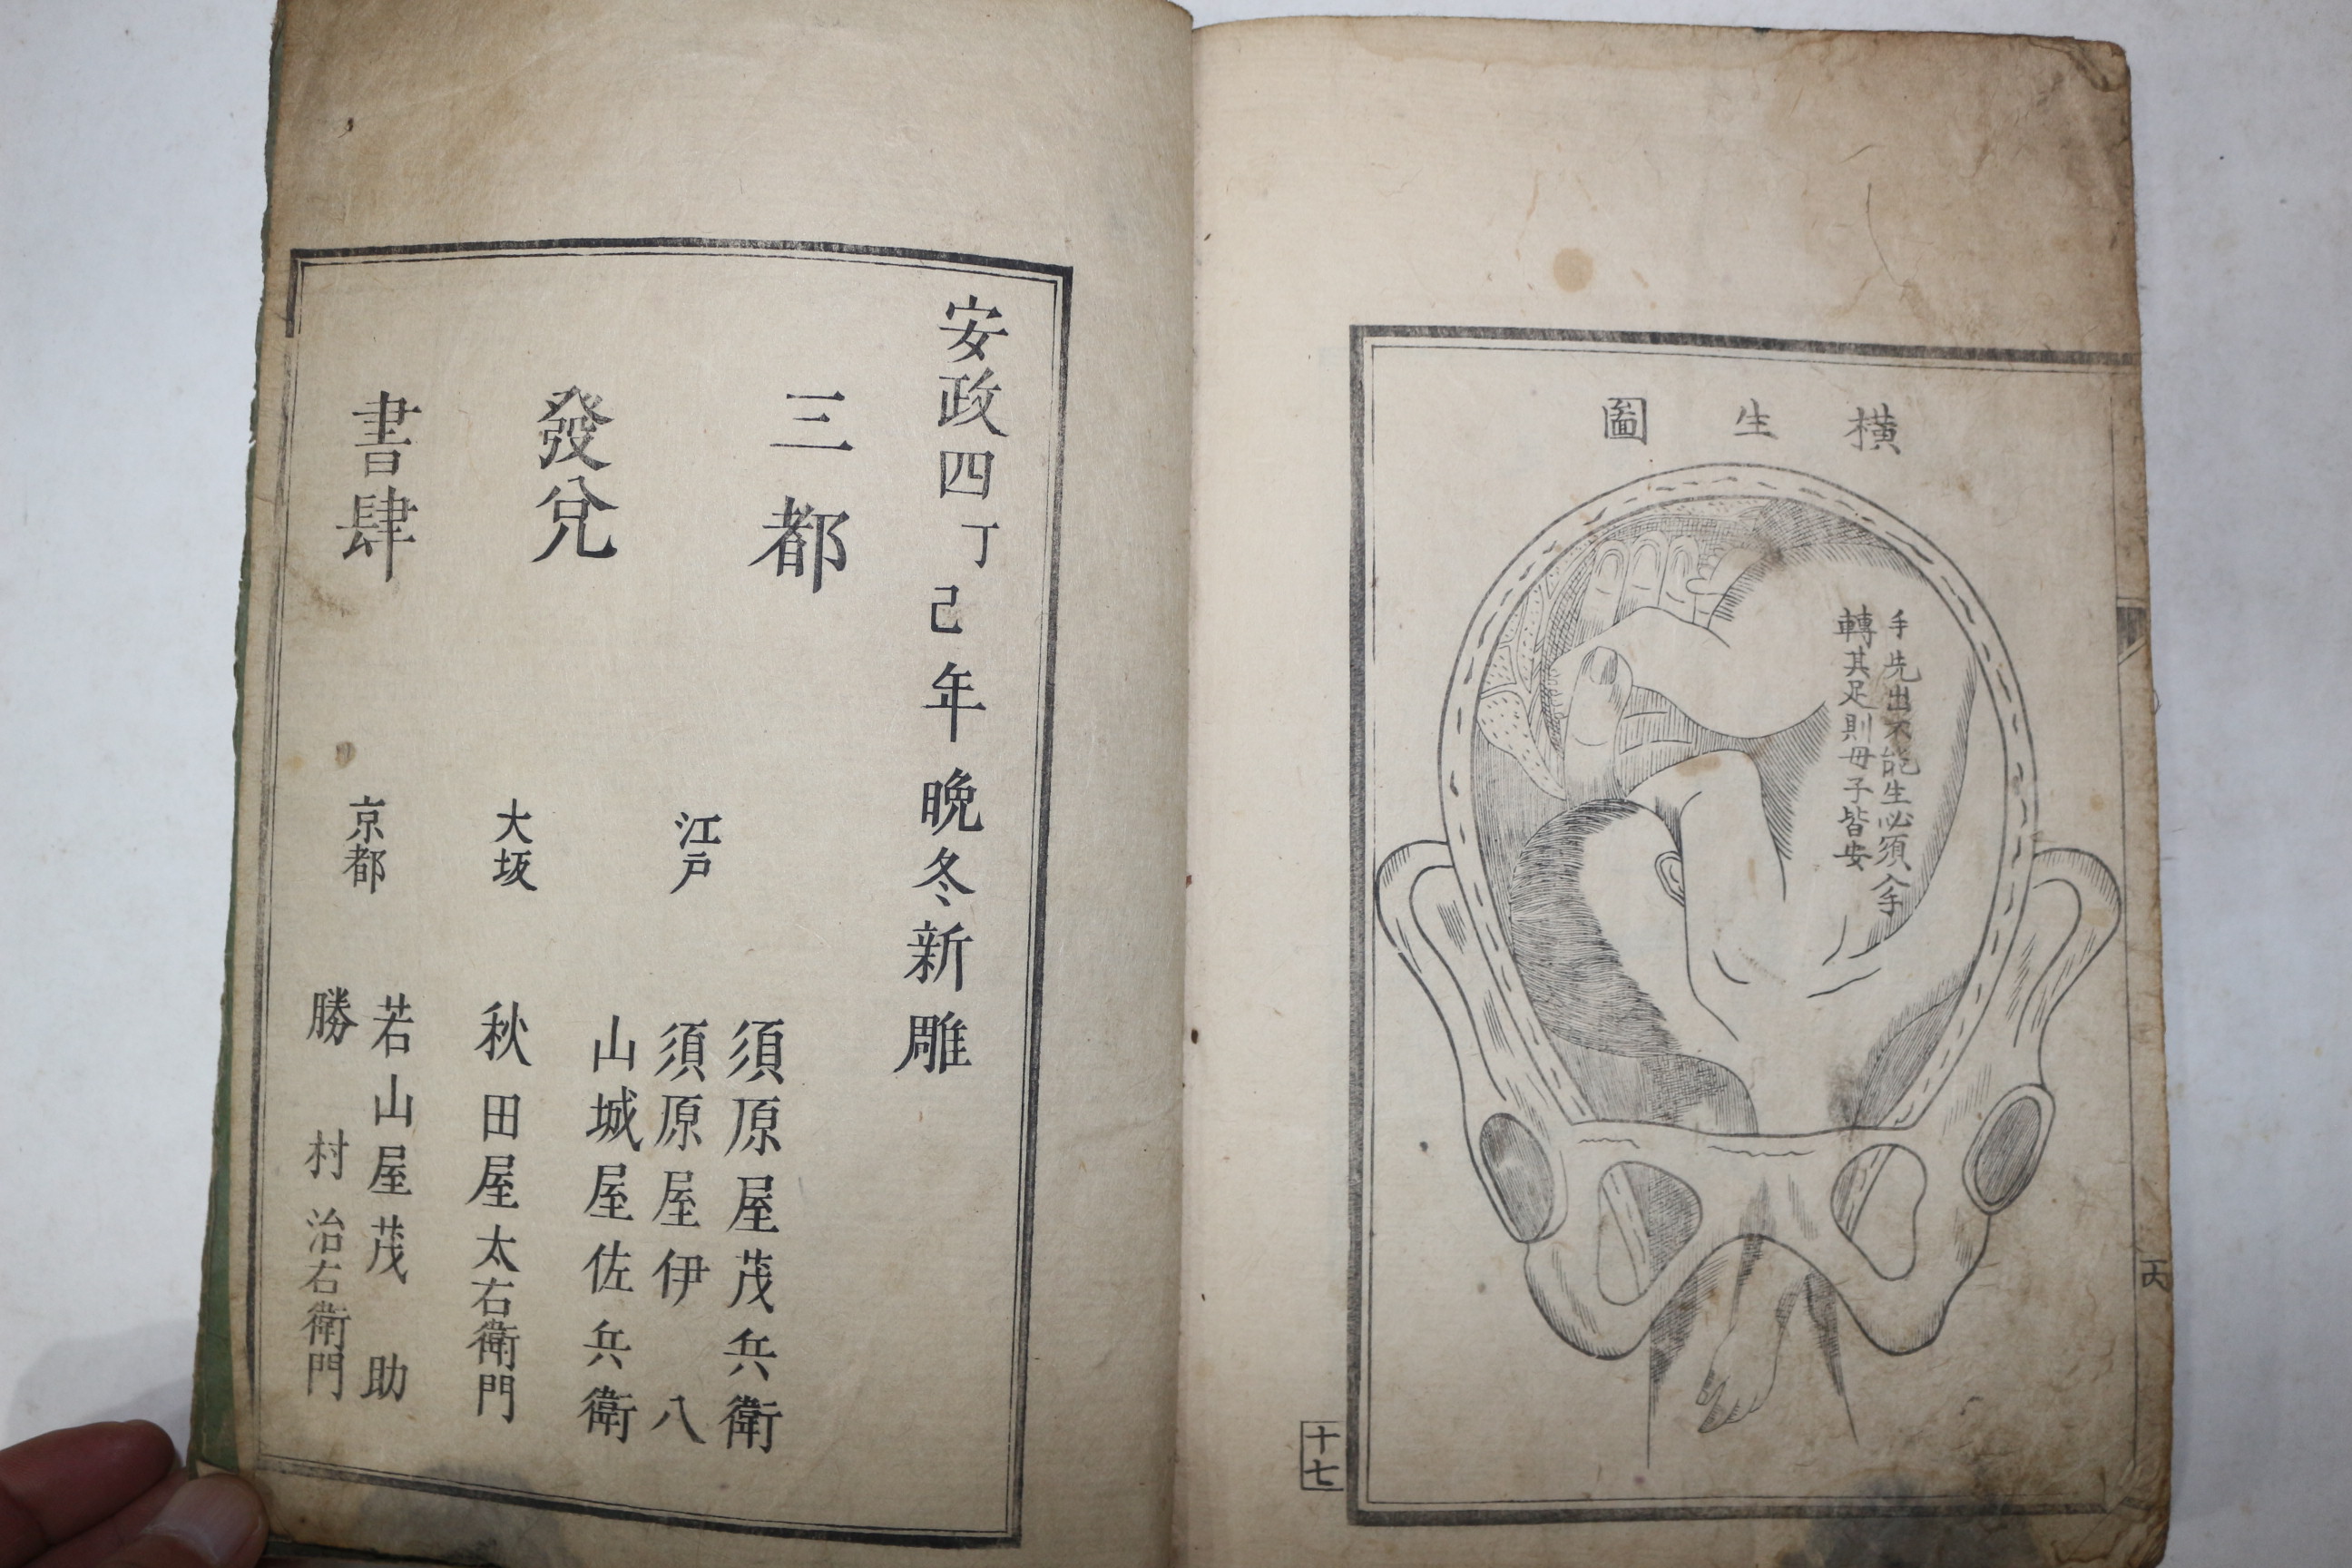 橫生圖
手先出不能生必須入手
轉其足則毋子皆安
十七
安政四丁己年晩冬新雕
三都
發兌
書肆
江戸
須原屋茂兵衛
須原屋伊八
山城屋佐兵衛
大坂
秋田屋太右衛門
京都
若山屋茂助
勝村治右衛門